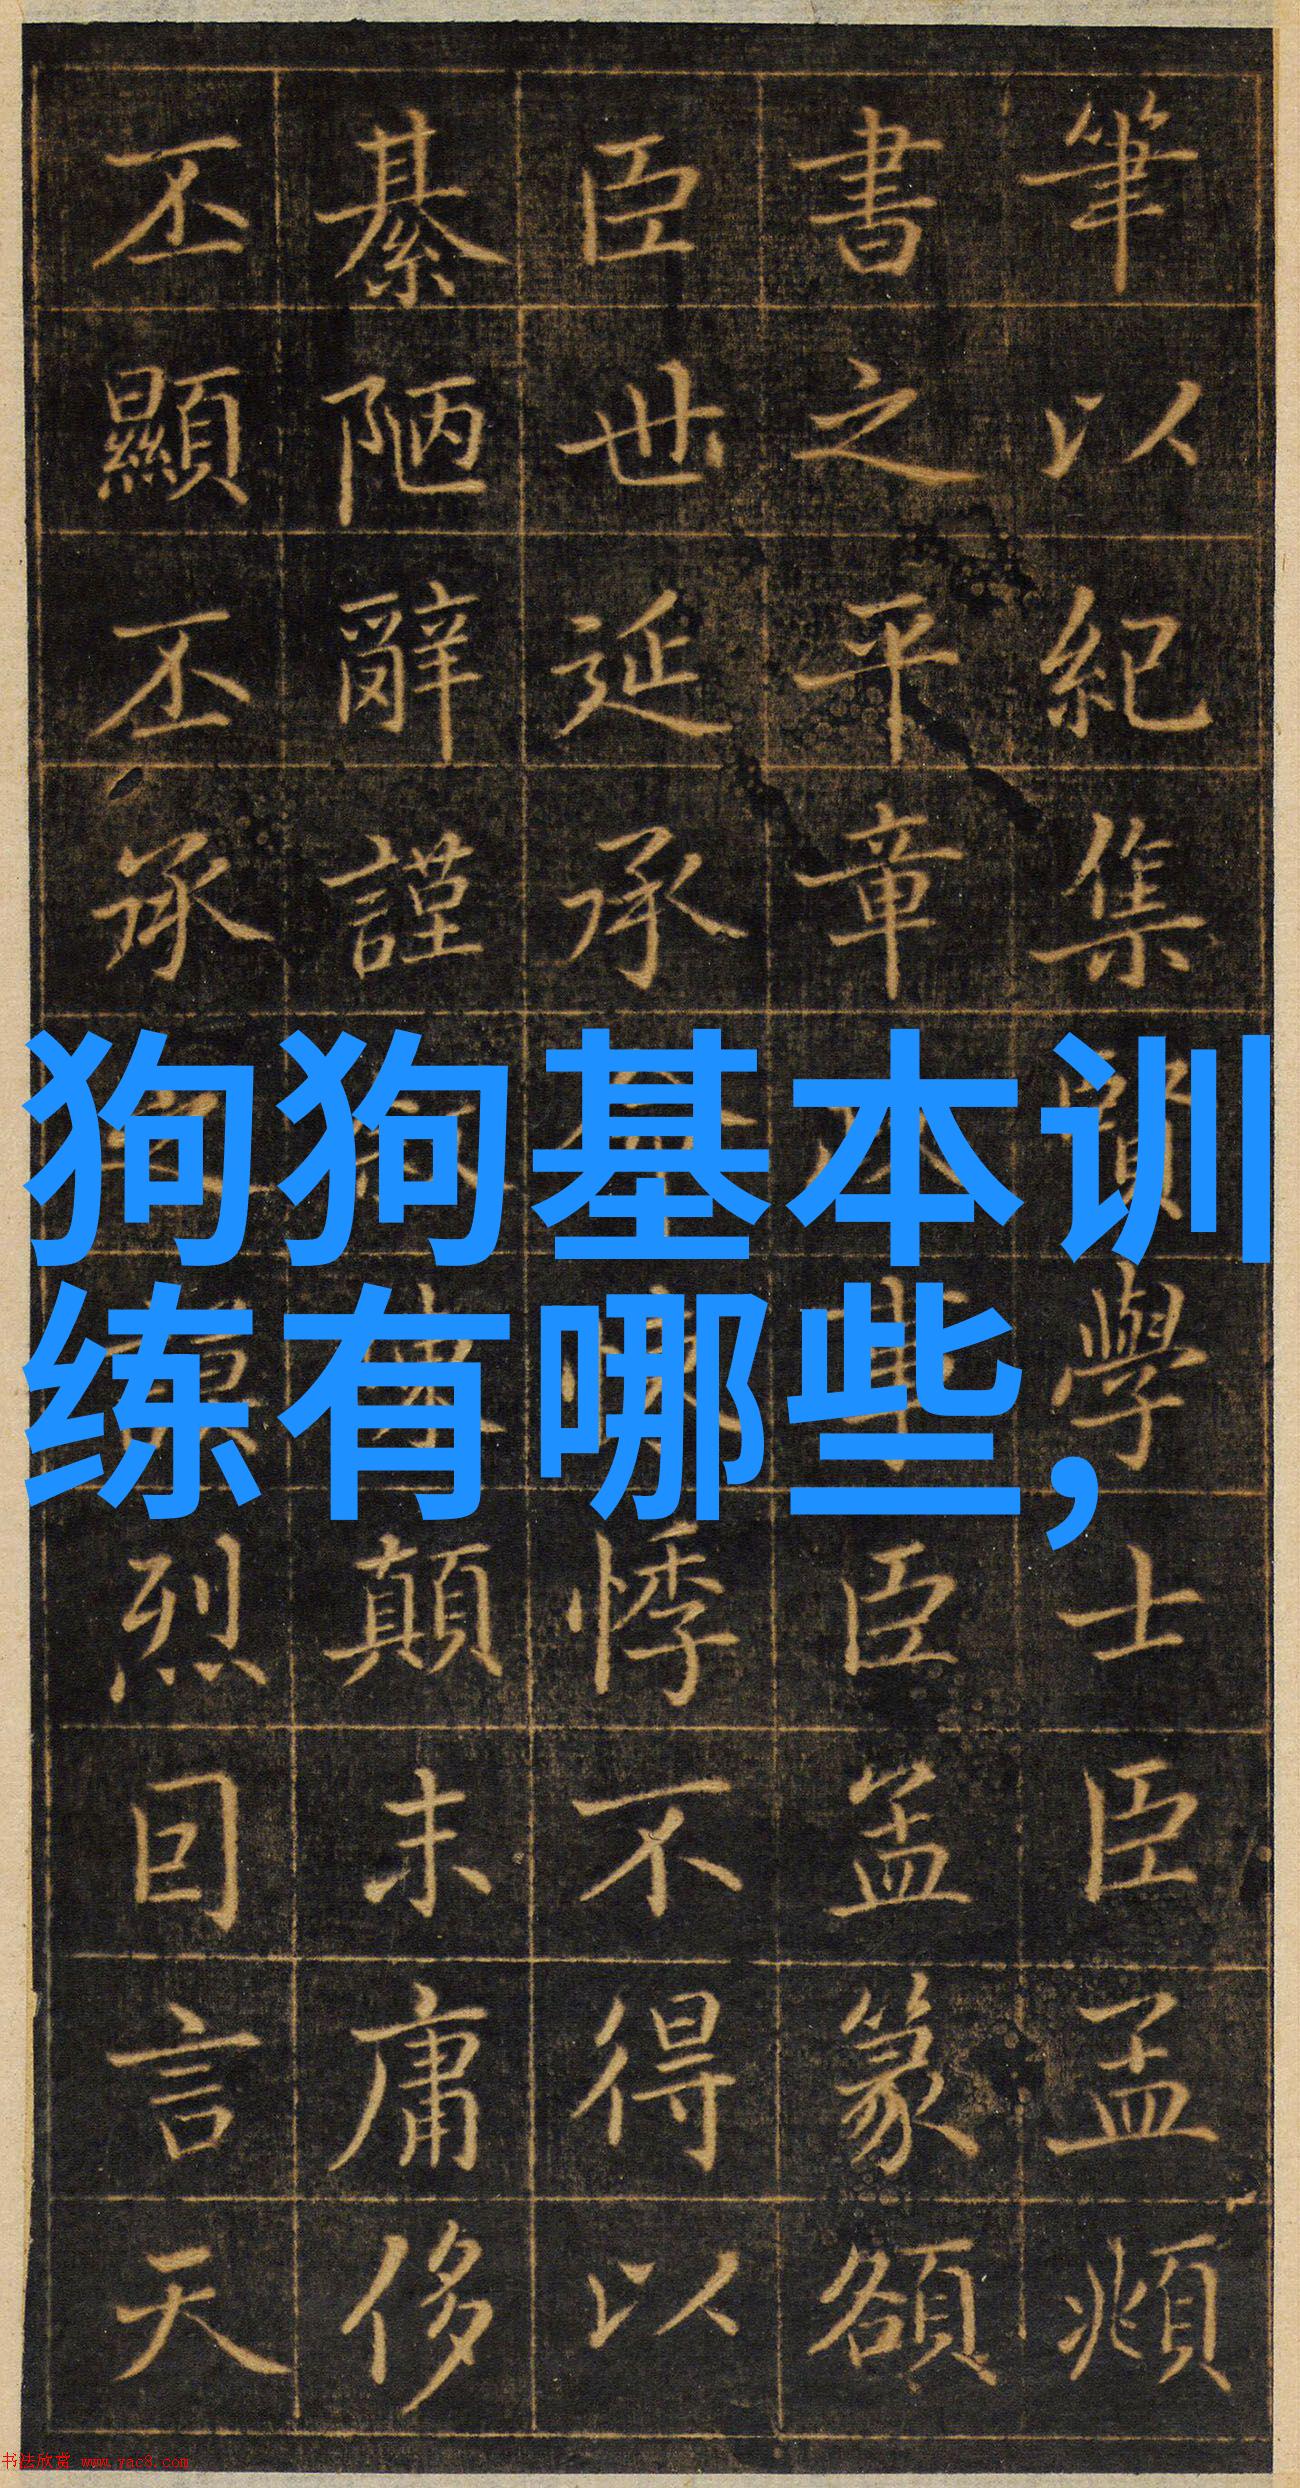 筆以紀集賢學士臣孟頫
書之平章事臣孟篆額
臣世延承悸不得以
綦陋辭謹顛末庸侈
丕顯丕承烈囙言天
狗狗基本训
练有哪些,
书法欣赏 www.yac8.com